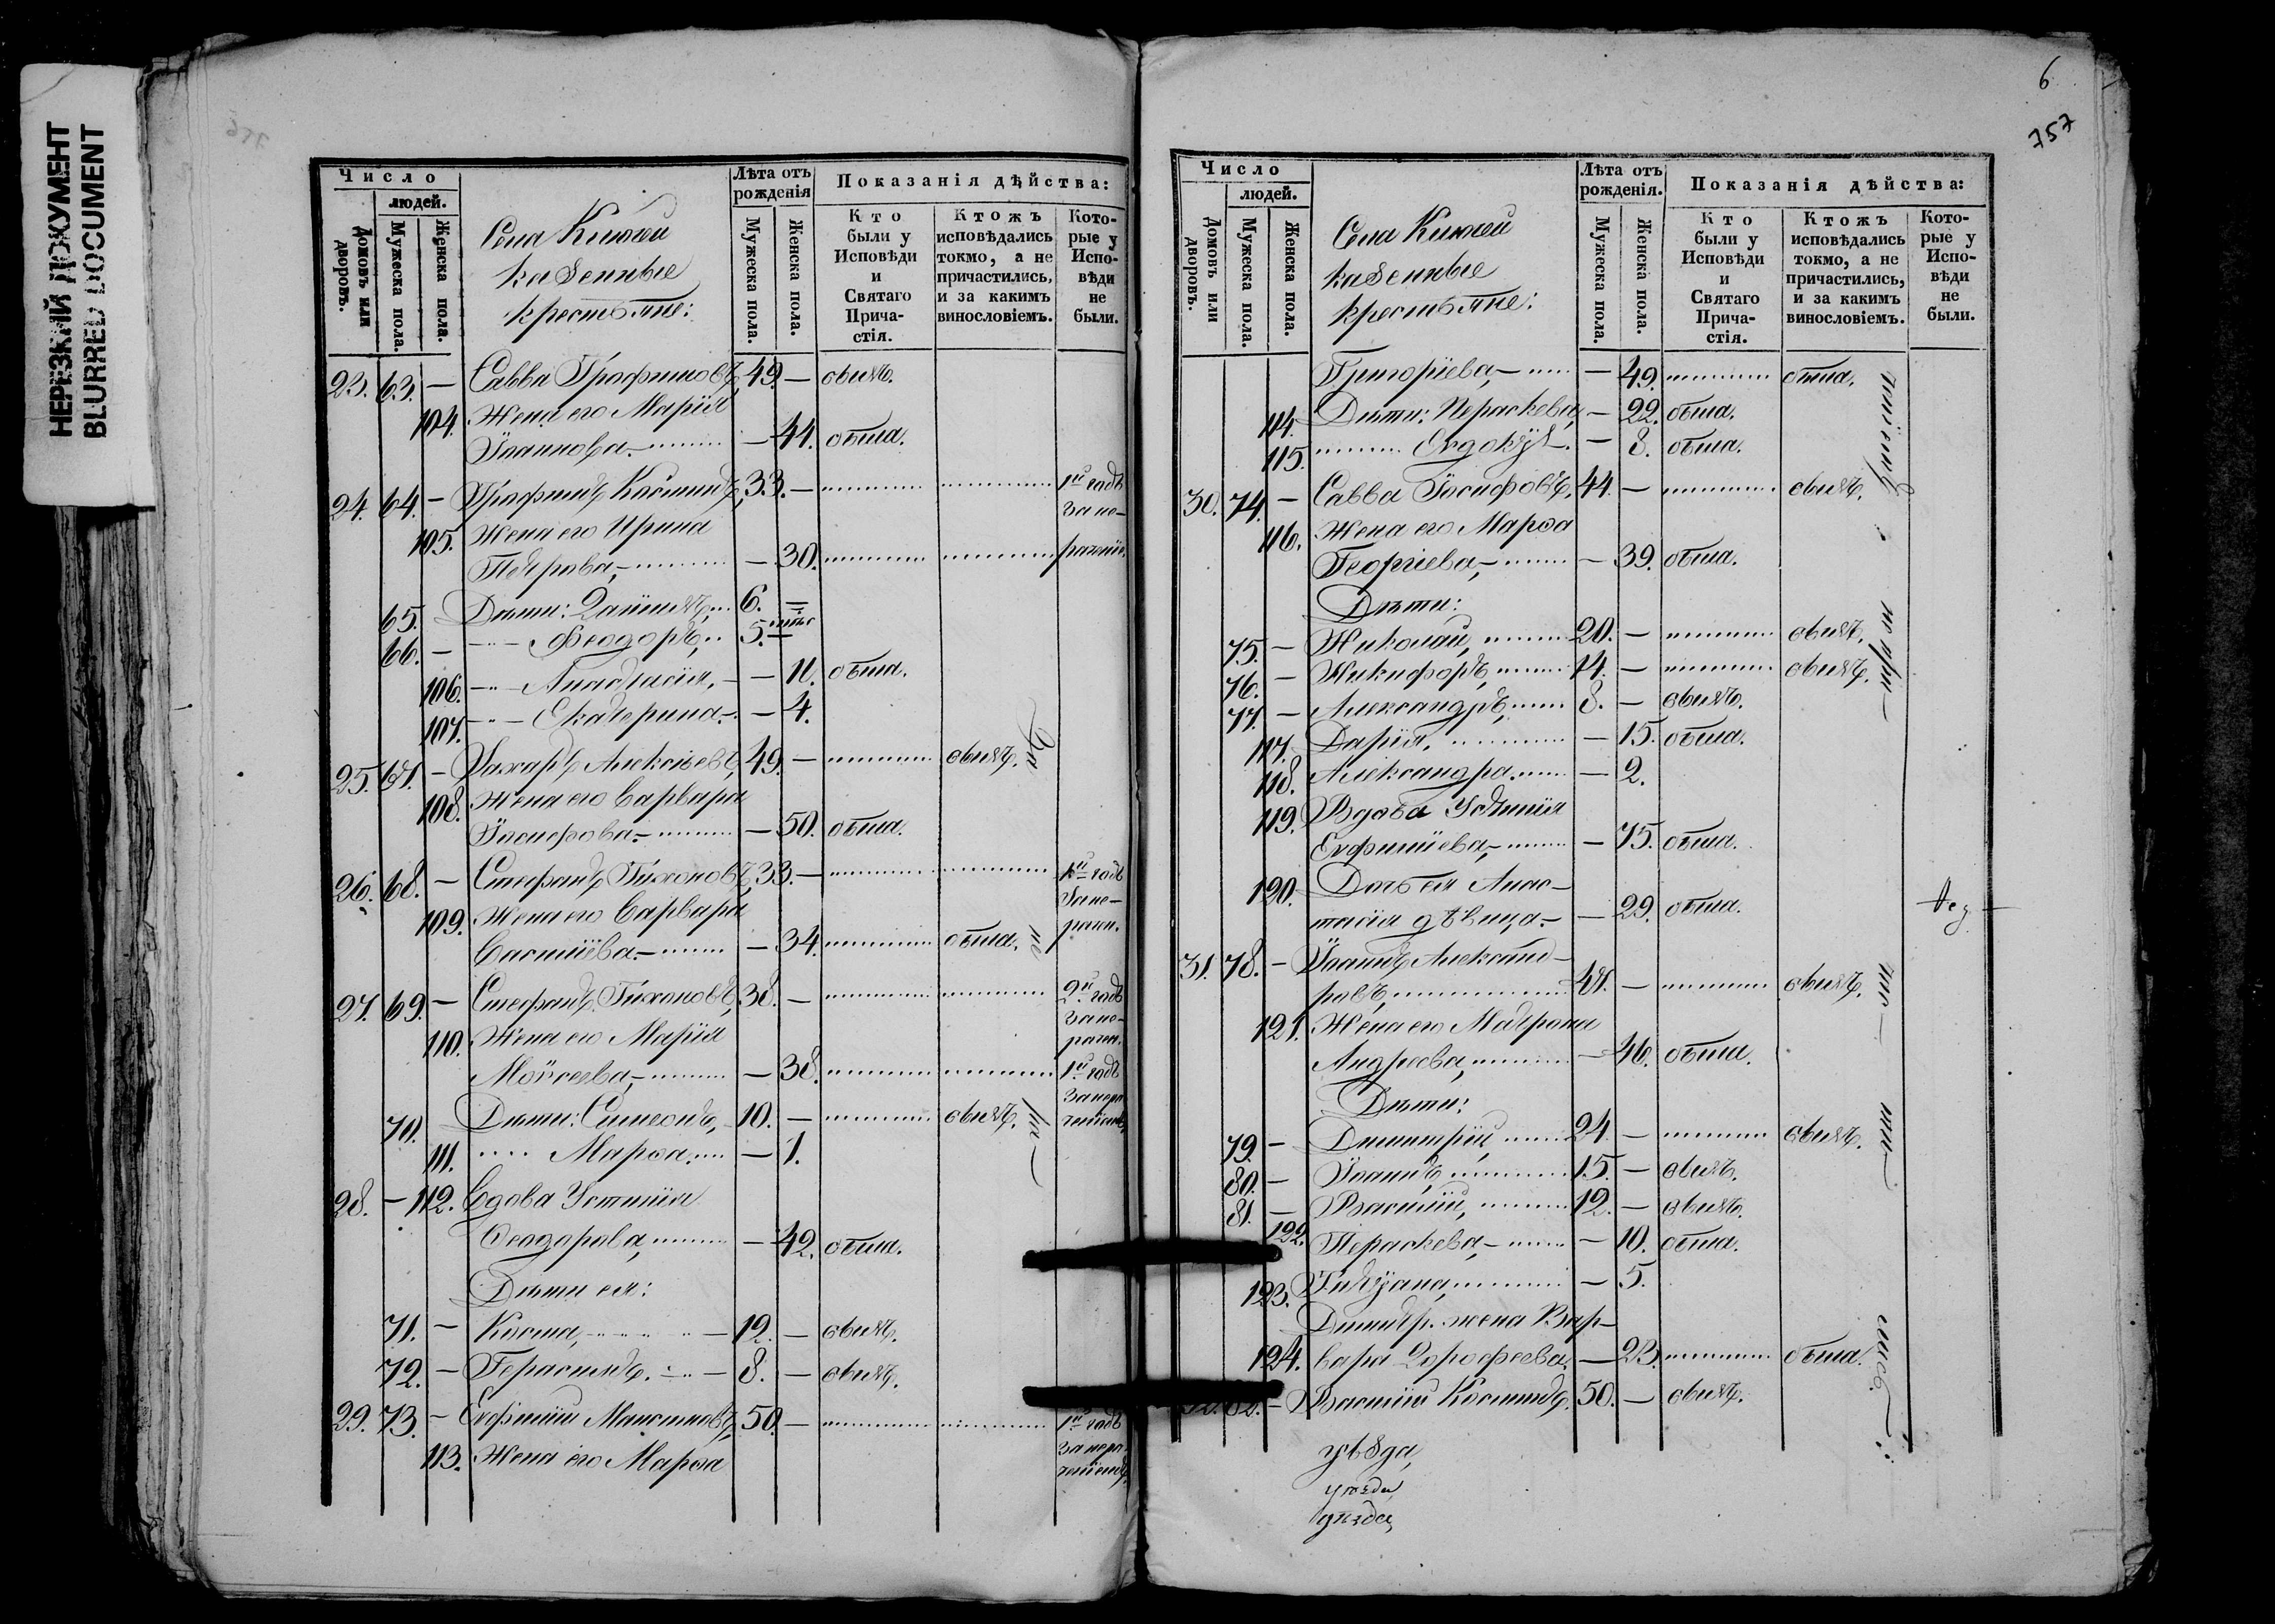 НЕРЕЗКИЙ ДОКУМЕНТ
BLURRED DOCUMENT
Число
людей.
Домовъ или дворовъ.
Мужеска пола.
Женска пола.
Села
казенные
крестьяне:
Лѣта отъ рожденія
Мужеска пола.
Женска пола.
Показанія дѣйства:
Кто были у Исповѣди и Святаго Прича-стія.
Ктожъ исповѣдались токмо, а не причастились, и за какимъ винословіемъ.
Кото-рые у Испо-вѣди не были.
23. 63. — Савва Трофимовъ, 49. — былъ.
104. Жена его Марія
Іоаннова — 44. была.
24. 64. — Трофимъ Косминъ, 33. — 1й годъ
за не-
105. Жена его Ирина
Петрова, — 30.
65. Дѣти: Даніилъ, 6. —
66. — Феодоръ, 5. —
106. Анастасія, — 11. была.
107. Екатерина. — 4.
25. 67. — Захаръ Алексіевъ, 49. — былъ.
108. Жена его Варвара
Іосифова — 50. была.
За
26. 68. — Стефанъ Тихоновъ, 33. — 1й годъ
за не-
109. Жена его Варвара
Василіева — 34. была.
27. 69. — Стефанъ Тихоновъ, 38. — 2й годъ
за не-
110. Жена его Марія
Моѵсеева, — 38. 1й годъ
70. Дѣти: Симеонъ, 10. — былъ.
111. Марѳа — 1.
28. — 112. Вдова Устинія
Ѳеодорова, — 42. была.
Дѣти ея:
71. — Косма, 12. — былъ.
72. — Герасимъ. 8. — былъ.
29. 73. — Евфимій Максимовъ, 50. — 1й годъ
113. Жена его Марѳа
6
757
Число
людей.
Домовъ или дворовъ.
Мужеска пола.
Женска пола.
Села
казенные
крестьяне:
Лѣта отъ рожденія.
Мужеска пола.
Женска пола.
Показанія дѣйства:
Кто были у Исповѣди и Святаго Прича-стія.
Ктожъ исповѣдались токмо, а не причастились, и за какимъ винословіемъ.
Кото-рые у Испо-вѣди не были.
Григоріева, — 49. была.
114. Дѣти: Параскева, — 22. была.
115. Евдокія — 8. была.
30. 74. — Савва Іосифовъ, 44. — былъ.
116. Жена его Марѳа
Георгіева, — 39. была.
Дѣти:
75. — Николай, 20. — былъ.
76. — Никифоръ, 14. — былъ.
77. — Александръ, 8. — былъ.
117. Дарія, — 15. была.
118. Александра — 2.
119. Вдова Устинія
Евфиміева, — 75. была.
120. Дочь ея Анас-
тасія дѣвица — 29. была.
31. 78. — Іоаннъ Александ-
ровъ, 47. — былъ.
121. Жена его Матрона
Андреева, — 46. была.
Дѣти:
79. — Димитрій, 24. — былъ.
80. — Іоаннъ, 15. — былъ.
81. — Василій, 12. — былъ.
122. Параскева, — 10. была.
123. Татіана, — 5.
Димитр. жена Вар-
124. вара Дорофеева, — 23. была.
32. 82. — Василій Косминъ, 50. — былъ.
уѣзда,
уѣзда
уѣзда,